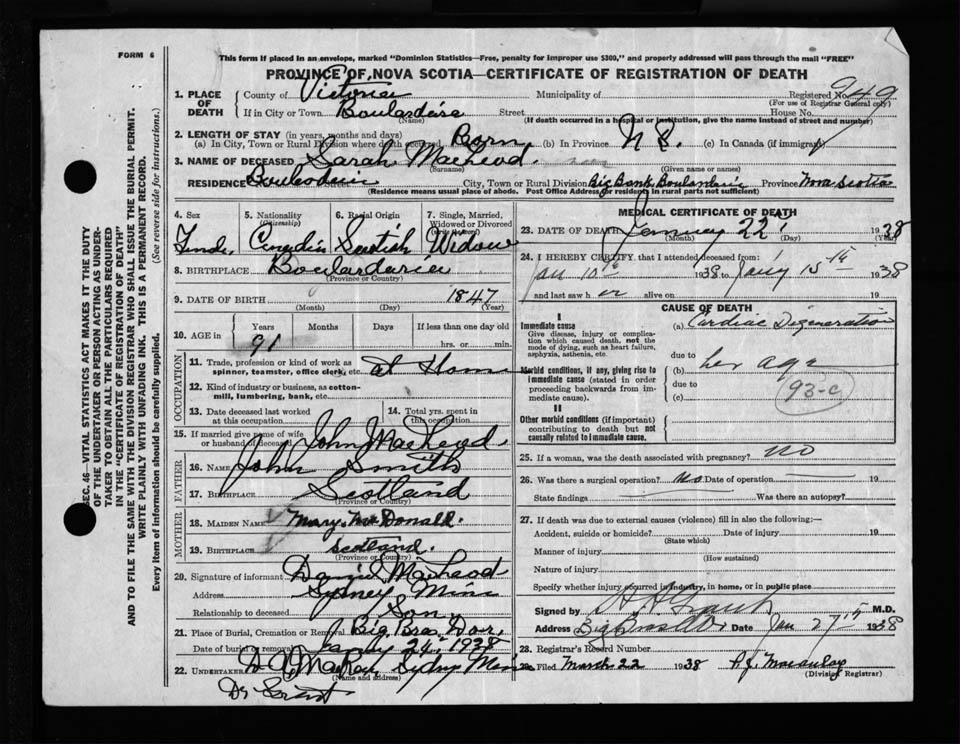 FORM 6
This form if placed in an envelope, marked "Dominion Statistics—Free, penalty for improper use $300," and properly addressed will pass through the mail "FREE"
PROVINCE OF NOVA SCOTIA—CERTIFICATE OF REGISTRATION OF DEATH
SEC. 46—VITAL STATISTICS ACT MAKES IT THE DUTY
OF THE UNDERTAKER OR PERSON ACTING AS UNDER-
TAKER TO OBTAIN ALL THE PARTICULARS REQUIRED
IN THE "CERTIFICATE OF REGISTRATION OF DEATH"
AND TO FILE THE SAME WITH THE DIVISION REGISTRAR WHO SHALL ISSUE THE BURIAL PERMIT.
WRITE PLAINLY WITH UNFADING INK. THIS IS A PERMANENT RECORD.
Every item of information should be carefully supplied. (See reverse side for instructions.)
1. PLACE OF DEATH
County of Victoria Municipality of Registered No. 949
(For use of Registrar General only)
If in City or Town Boulardarie Street House No.
(Name) (If death occurred in a hospital or institution, give the name instead of street and number)
2. LENGTH OF STAY (in years, months and days)
(a) In City, Town or Rural Division where death occurred Born (b) In Province N S. (c) In Canada (if immigrant)
3. NAME OF DECEASED Sarah MacLeod
(Surname) (Given name or names)
RESIDENCE Boulardarie City, Town or Rural Division Big Bank Boulardarie Province Nova Scotia
(Residence means usual place of abode. Post Office Address for residents in rural parts not sufficient)
4. Sex 5. Nationality (Citizenship) 6. Racial Origin 7. Single, Married, Widowed or Divorced
Scotish Widow
8. BIRTHPLACE Boulardarie
(Province or Country)
9. DATE OF BIRTH 1847
(Month) (Day) (Year)
10. AGE in Years Months Days If less than one day old
91 hrs. or min.
OCCUPATION
11. Trade, profession or kind of work as
spinner, teamster, office clerk, etc. at Home
12. Kind of industry or business, as cotton-
mill, lumbering, bank, etc.
13. Date deceased last worked at this occupation 14. Total yrs. spent in this occupation
15. If married give name of wife
or husband of deceased John MacLeod
FATHER
16. NAME John Smith
17. BIRTHPLACE Scotland
(Province or Country)
MOTHER
18. MAIDEN NAME Mary McDonald.
19. BIRTHPLACE Scotland.
(Province or Country)
20. Signature of informant MacLeod
Address Sydney Mines
Relationship to deceased Son
21. Place of Burial, Cremation or Removal Big Bras Dor,
Date of burial or removal 24, 1938
22. UNDERTAKER Sydney Mines
(Name and address)
MEDICAL CERTIFICATE OF DEATH
23. DATE OF DEATH January 22 1938
(Month) (Day) (Year)
24. I HEREBY CERTIFY, that I attended deceased from:
Jan 10th 1938 to Jan'y 15th 1938
and last saw her alive on 19
CAUSE OF DEATH
I
Immediate cause
Give disease, injury or complica-
tion which caused death, not the
mode of dying, such as heart failure,
asphyxia, asthenia, etc.
(a) Cardiac Degeneration
due to
Morbid conditions, if any, giving rise to
immediate cause (stated in order
proceeding backwards from im-
mediate cause).
(b) her age
due to
(c) 93-c
II
Other morbid conditions (if important)
contributing to death but not
causally related to immediate cause.
25. If a woman, was the death associated with pregnancy? no
26. Was there a surgical operation? no. Date of operation 19
State findings Was there an autopsy?
27. If death was due to external causes (violence) fill in also the following:—
Accident, suicide or homicide? Date of injury 19
(State which)
Manner of injury
(How sustained)
Nature of injury
Specify whether injury occurred in industry, in home, or in public place
Signed by M.D.
Address Big Bras Dor Date Jan 27th 1938
28. Registrar's Record Number
29. Filed March 22 1938 Macaulay
(Division Registrar)